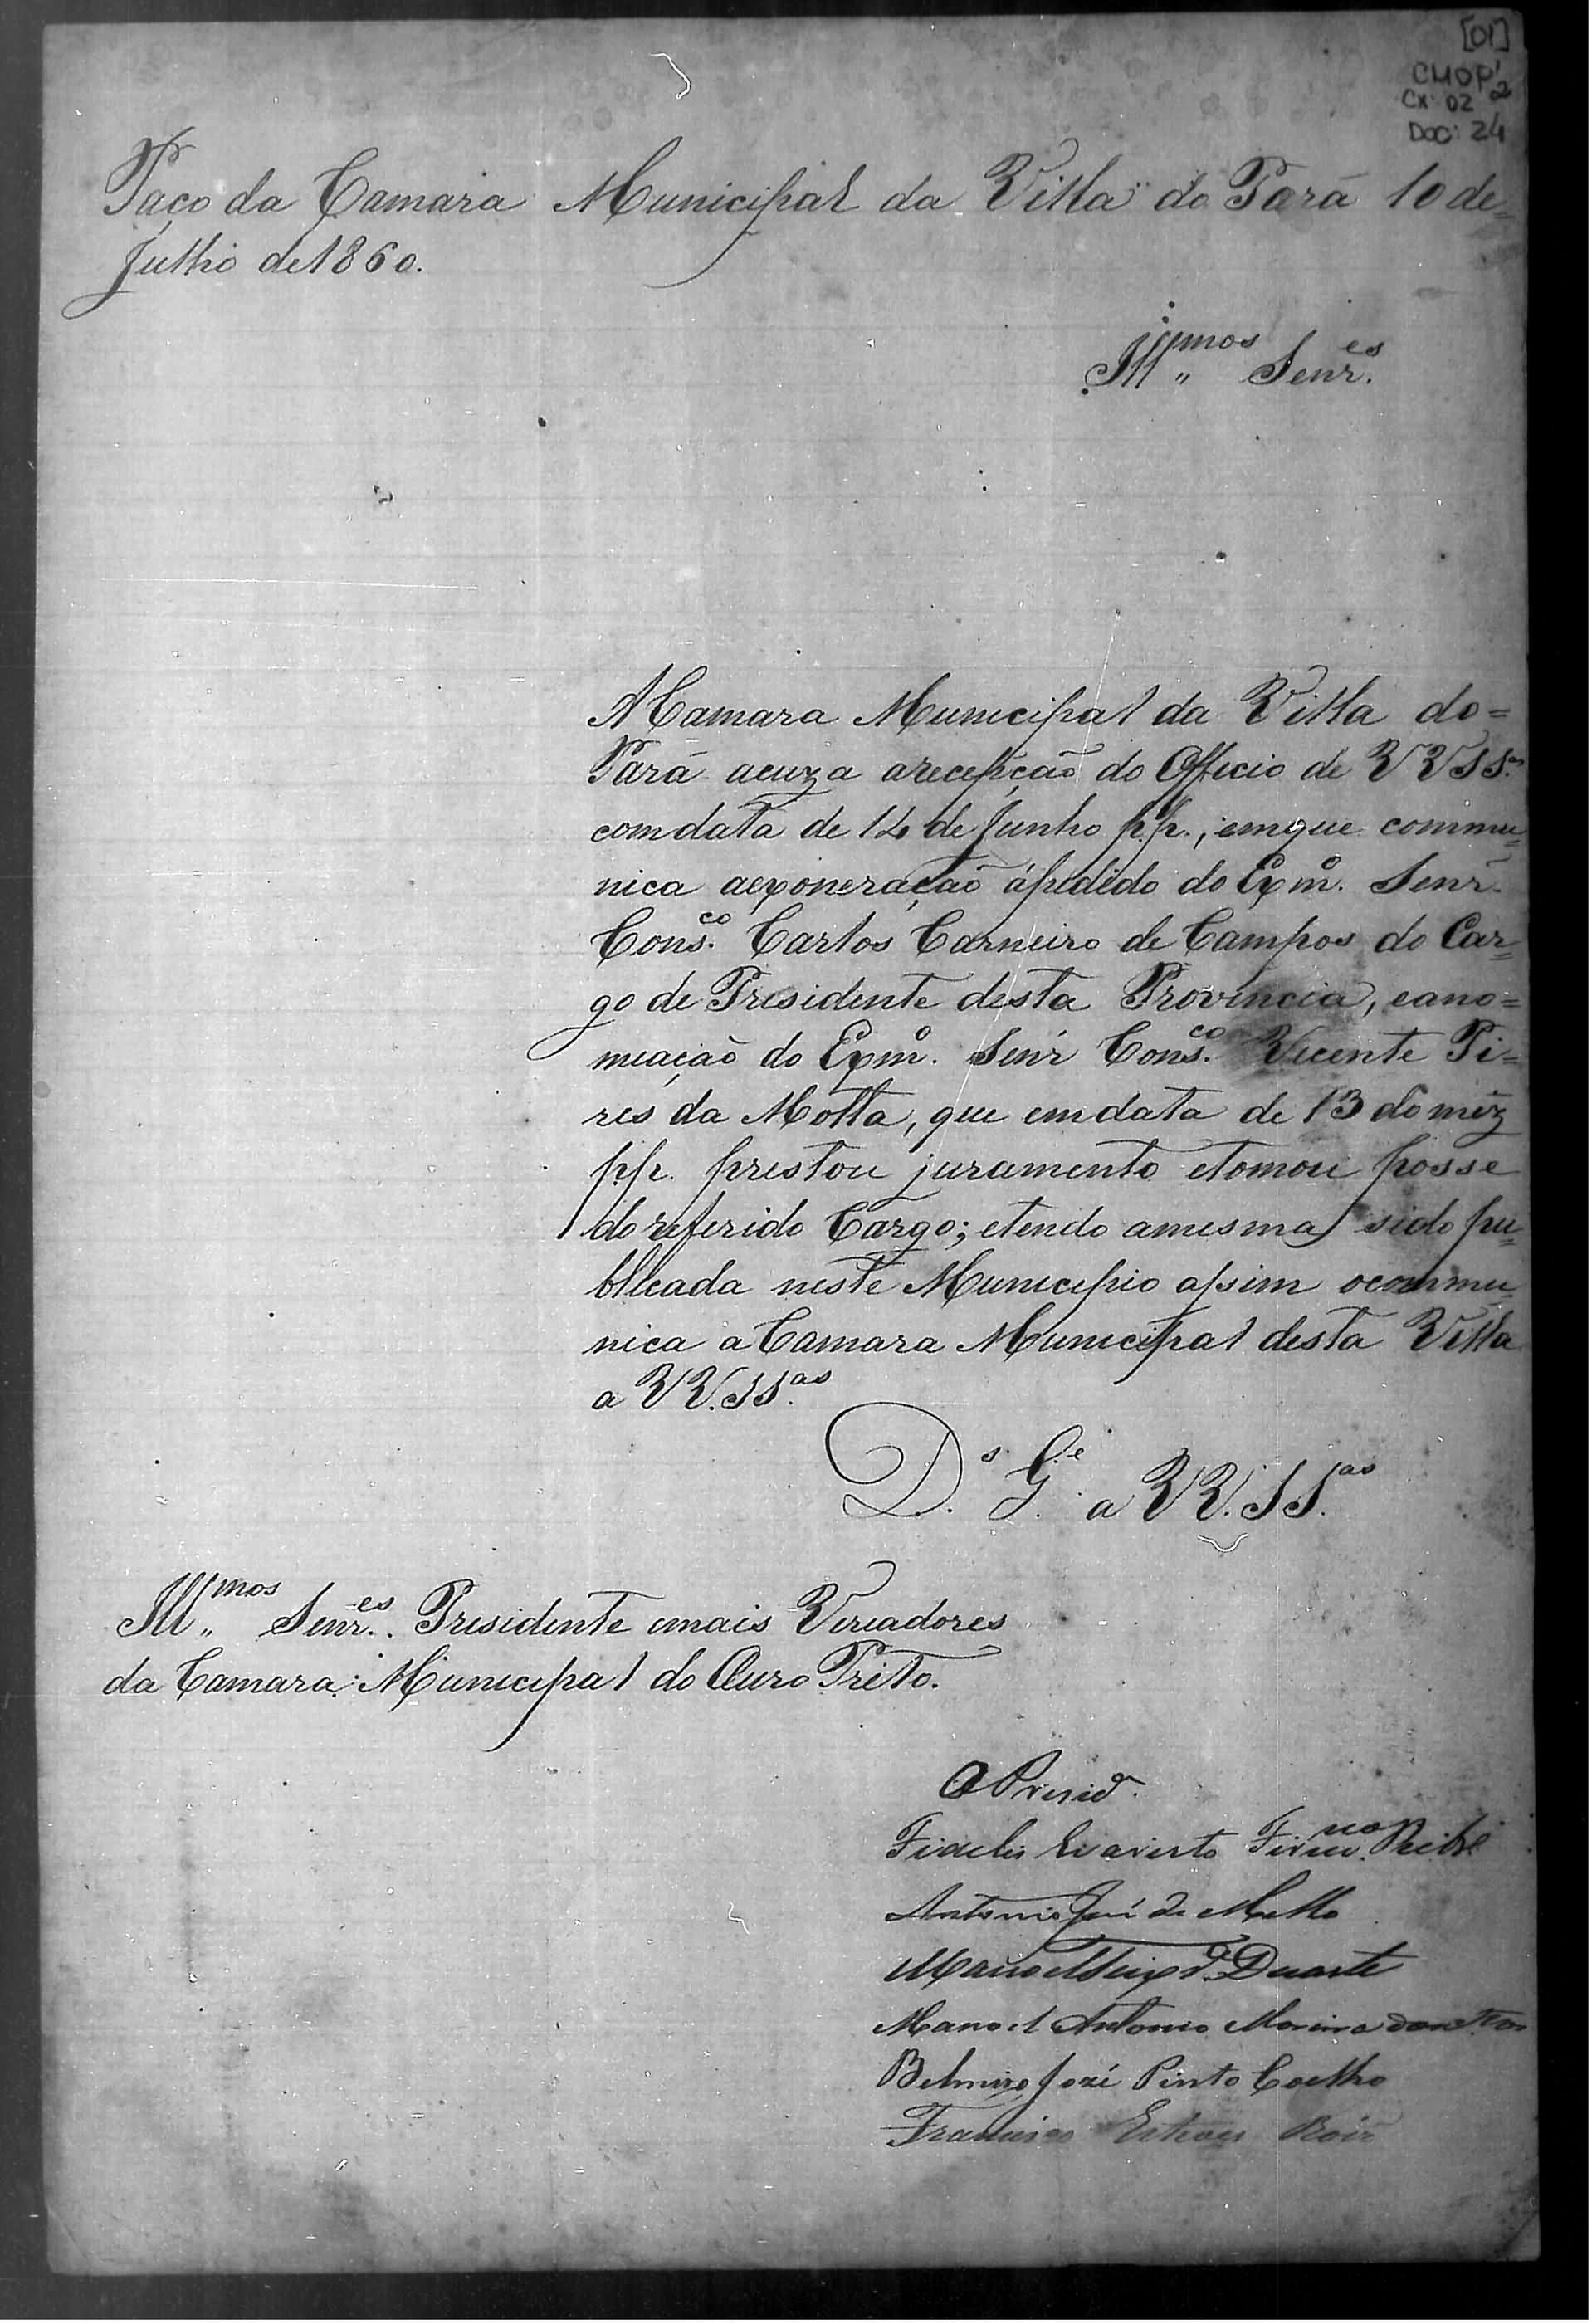 [01]
CMOP
Cx: 02
Doc: 24
Paço da Camara Municipal da Villa do Pará 10 de=
Julho de 1860.
Ill,,mos Senr.es
A Camara Municipal da Villa do=
Pará acuza a recepção do Officio de VVSS.as
com data de 14 de Junho p.p., em que commu=
nica aexoneração ápedido do Exmo. Senr.
Cons.co Carlos Carneiro de Campos do Car=
go de Presidente desta Provincia, eano=
meação do Exmo. Senr Cons.co Vicente Pi=
res da Motta, que em data de 13 do mez
p.p. prestou juramento etomou posse
do referido Cargo; etendo amesma sido pu=
bllcada neste Municipio assim ocommu
nica a Camara Municipal desta Villa
a VV.SS.as
D.s G.e a VV.SS.as
Ill,,mos Senr.es Presidente emais Vereadores
da Camara Municipal do Ouro Preto.
O Presid.e
Fidelis Evaristo
Antonio José de Mello
Manoel Duarte
Manoel Antonio Moreira
Belmiro José Pinto Coelho
Francisco